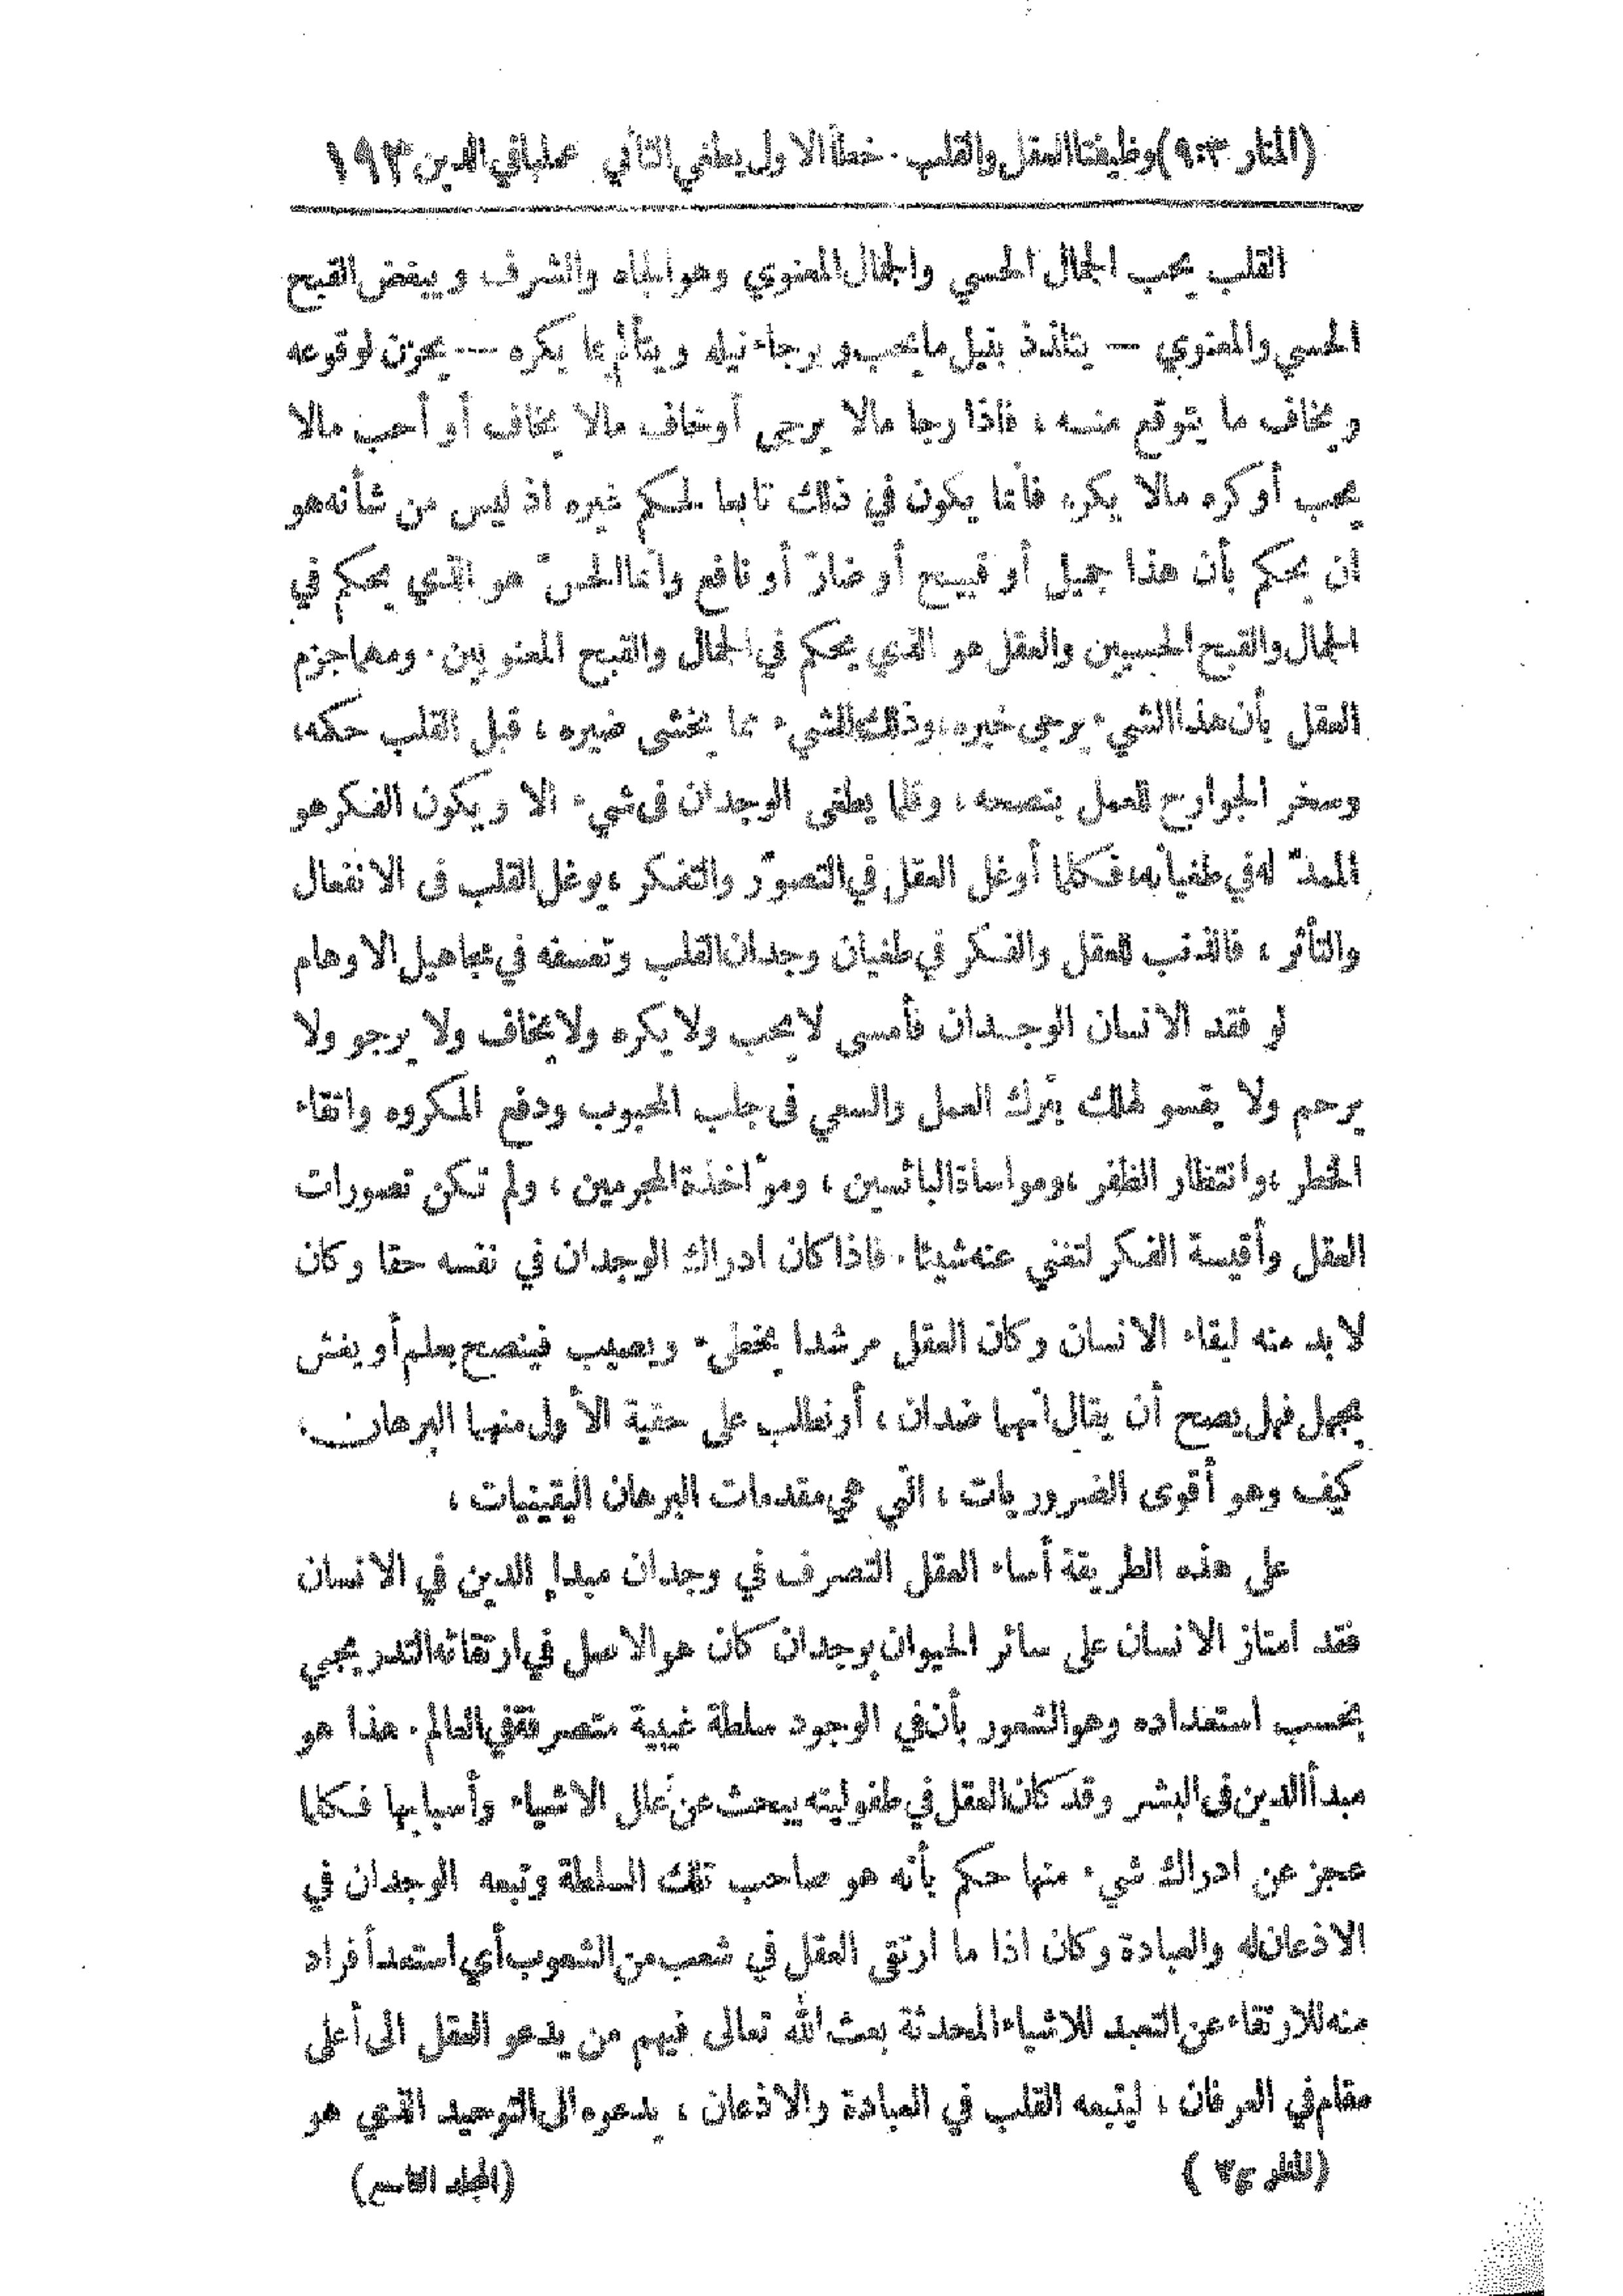 (المنار ٣:٩) وظيفتا العقل والقلب . خطأ الاول يطغي الثاني عملهما في الدين ١٩٣
القلب يحب الجمال الحسي والجمال المعنوي وهو الجاه والشرف ويبغض القبح
الحسي والمعنوي — يتلذذ بنيل ما يحب ورجاء نيله ويتألم مما يكره — يحزن لوقوعه
ويخاف ما يتوقع منه ، فاذا رجا مالا يرجى أو خاف مالا يخاف أو أحب مالا
يحب أو كره مالا يكره فانما يكون في ذلك تابعا لحكم غيره اذ ليس من شأنه هو
ان يحكم بأن هذا جميل أو قبيح أو ضارّ أو نافع وانما الحسّ هو الذي يحكم في
الجمال والقبح الحسيين والعقل هو الذي يحكم في الجمال والقبح المعنويين . ومهما جزم
العقل بأن هذا الشيء يرجى خيره ، وذلك الشيء مما يخشى ضيره ، قبل القلب حكمه ،
وسخر الجوارح للعمل بنصحه ، وقلما يطغى الوجدان في شيء الا ويكون الفكر هو
الممدّ له في طغيانه ، فكلما أوغل العقل في التصوّر والتفكر ، يوغل القلب في الانفعال
والتأثر ، فالذنب للعقل والفكر في طغيان وجدان القلب وتعسفه في مجاهيل الاوهام
لو فقد الانسان الوجدان فأمسى لا يحب ولا يكره ولا يخاف ولا يرجو ولا
يرحم ولا يقسو لهلك بترك العمل والسعي في جلب المحبوب ودفع المكروه واتقاء
الخطر ، وانتظار الظفر ، ومواساة البائسين ، ومؤاخذة المجرمين ، ولم تكن تصورات
العقل وأقيسة الفكر لتغني عنه شيئا . فاذا كان ادراك الوجدان في نفسه حقا وكان
لا بد منه لبقاء الانسان وكان العقل مرشدا يخطئ ويصيب فينصح بعلم أو يغش
بجهل فهل يصح أن يقال انهما ضدان ، أو نطلب على حقية الأول منهما البرهان .
كيف وهو أقوى الضروريات ، التي هي مقدمات البرهان اليقينيات ،
على هذه الطريقة أساء العقل التصرف في وجدان مبدإ الدين في الانسان
فقد امتاز الانسان على سائر الحيوان بوجدان كان هو الاصل في ارتقائه التدريجي
بحسب استعداده وهو الشعور بأن في الوجود سلطة غيبية متصرفة في العالم . هذا هو
مبدأ الدين في البشر وقد كان العقل في طفوليته يبحث عن علل الاشياء وأسبابها فكلما
عجز عن ادراك شيء منها حكم بأنه هو صاحب تلك السلطة وتبعه الوجدان في
الاذعان له والعبادة وكان اذا ما ارتقى العقل في شعب من الشعوب أي استعد أفراد
منه للارتقاء عن التعبد للاشياء المحدثة بعث الله تعالى فيهم من يدعو العقل الى أعلى
مقام في العرفان ، ليتبعه القلب في العبادة والاذعان ، يدعوه الى التوحيد الذي هو
(المجلد التاسع)